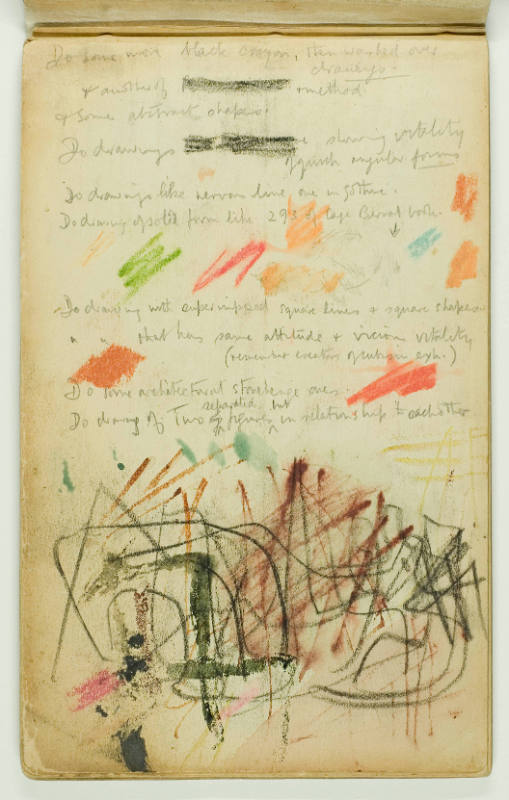 Do some more black crayon, then washed over
drawings.
& another of method.
& some abstract shapes.
Do drawings showing vitality
of quick angular forms
Do drawings like nervous line one in
Do drawing of solid from like 293 of large book.
Do drawing with superimposed square lines & square shapes
" " that has same attitude & vicious vitality
(remember exh.)
Do some architectural stonehenge ones.
separated but
Do drawing of Two figures in relationship to each other